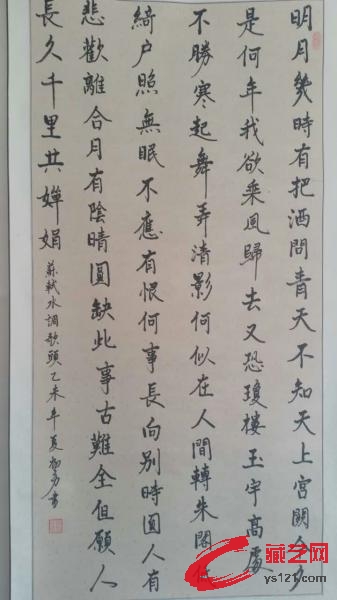 明月幾時有把酒問青天不知天上宮闕今夕
是何年我欲乘風歸去又恐瓊樓玉宇高處
不勝寒起舞弄清影何似在人間轉朱閣低
綺户照無眠不應有恨何事長向别時圓人有
悲歡離合月有陰晴圓缺此事古難全但願人
長久千里共嬋娟
蘇軾水調歌頭乙未年夏書
藏艺网
ys121.com